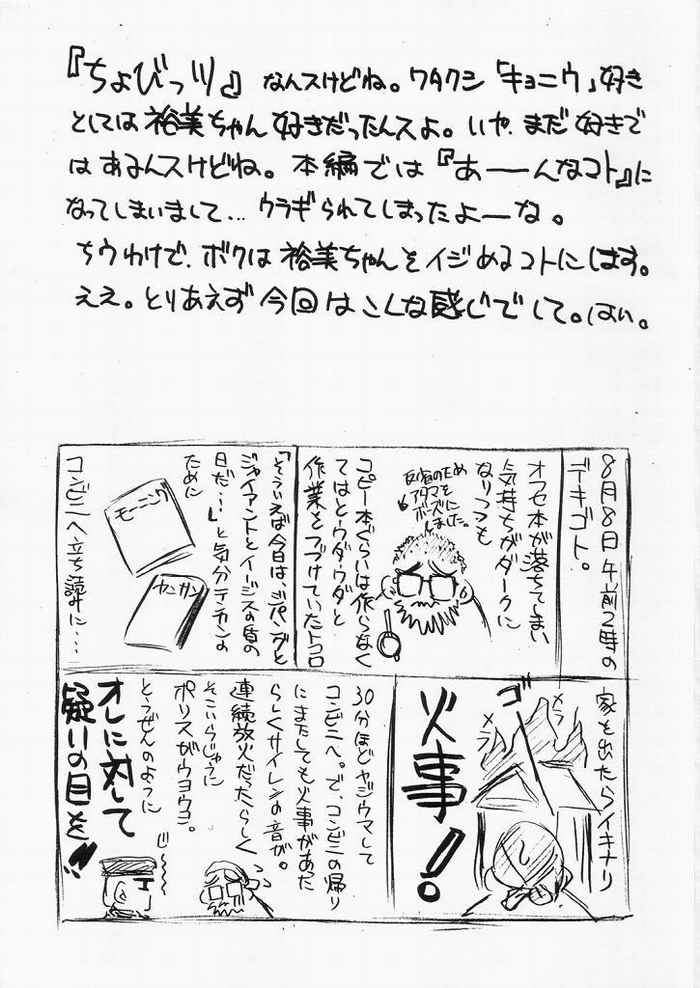 『ちょびっツ』なんスけどね。ワタクシ「キョニウ」好き
としては裕美ちゃん好きだったんスよ。いや、まだ好きで
はあるんスけどね。本編では『あーーんなコト』に
なってしまいまして…ウラギられてしまったよーな。
ちうわけで、ボクは裕美ちゃんをイジめるコトにしはす。
ええ。とりあえず今回はこんな感じでして。はい。
8月8日午前2時の
デキゴト。
オフセ本が落ちてしまい
気持ちがダークに
なりつつも
反省のため
アタマを
ボーズに
しました。
コピー本ぐらいは作らなく
てはとウダウダと
作業をつづけていたトコロ
「そういえば今日は、ジパングと
ジャイアントとイージスの盾の
日だ…」と気分テンカンの
ために
モーニング
ヤンサン
コンビニへ立ち読みに…
家を出たらイキナリ
ゴー
メラ
メラ
火事!
30分ほどヤジウマして
コンビニへ。で、コンビニの帰り
にまたしても火事があった
らしくサイレンの音が。
連続放火だったらしく
そこいらじゅうに
ポリスがウヨウヨ。
とうぜんのように
オレに対して
疑いの目を!!